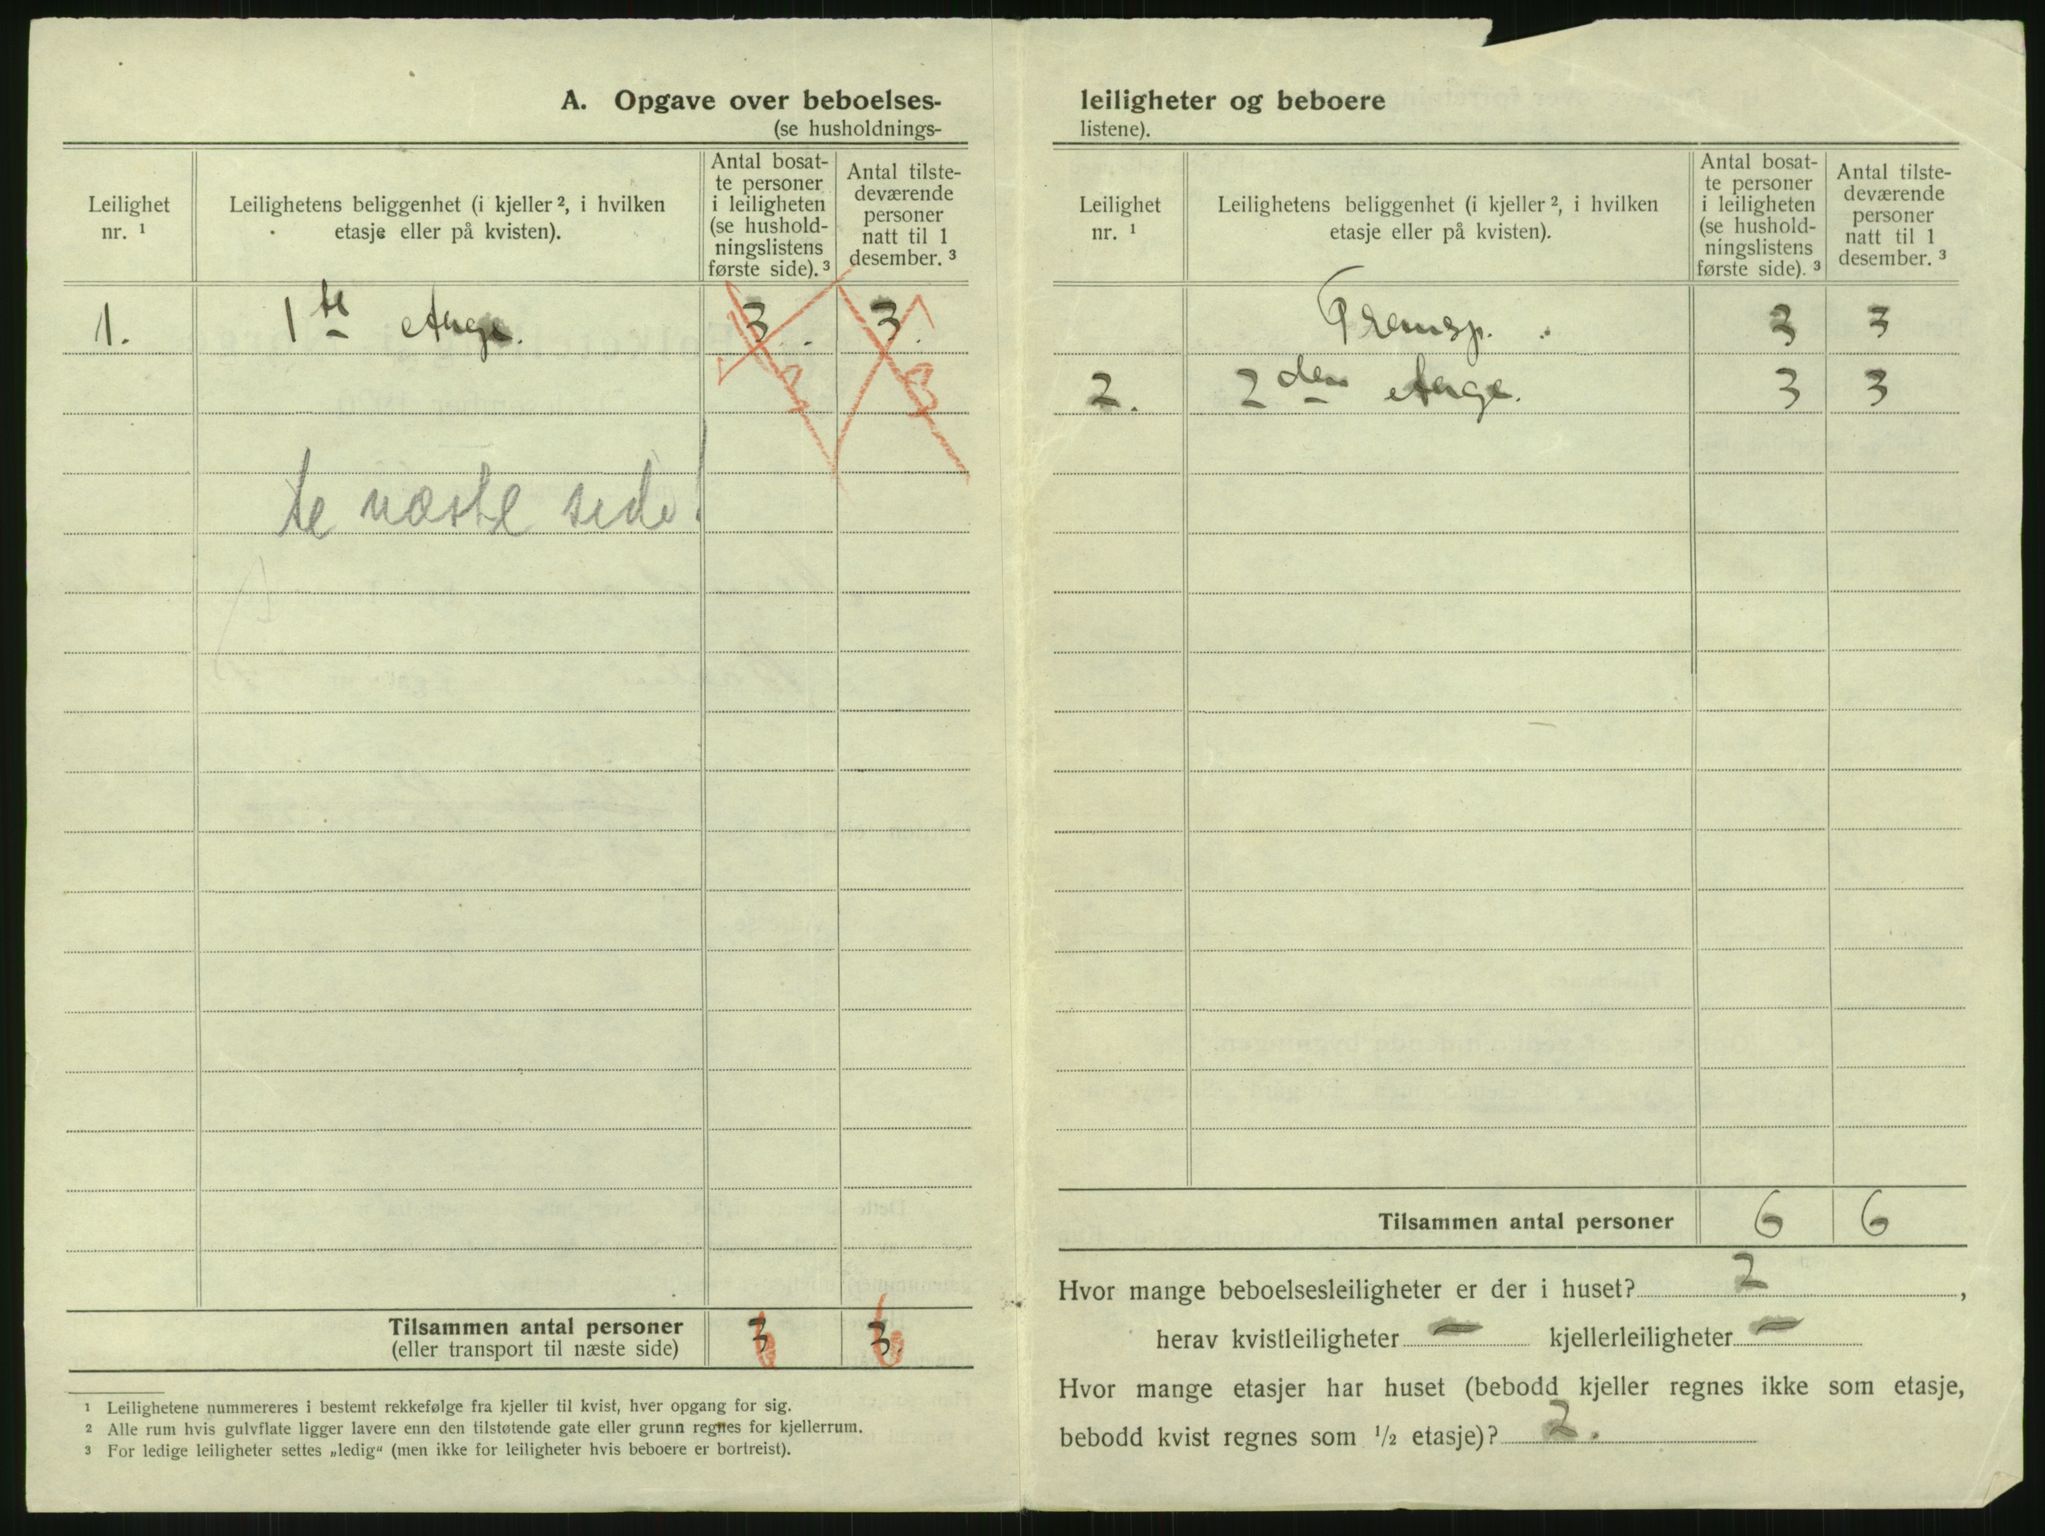 A. Opgave over beboelses-
(se husholdnings-
Leilighet nr. ¹
Leilighetens beliggenhet (i kjeller ², i hvilken
etasje eller på kvisten).
Antal bosat-
te personer
i leiligheten
(se hushold-
ningslistens
første side). ³
Antal tilste-
deværende
personer
natt til 1
desember. ³
1. 1te Etage. 3. 3.
3 3
se næste side!
Tilsammen antal personer 3 3.
(eller transport til næste side) 6 6
¹ Leilighetene nummereres i bestemt rekkefølge fra kjeller til kvist, hver opgang for sig.
² Alle rum hvis gulvflate ligger lavere enn den tilstøtende gate eller grunn regnes for kjellerrum.
³ For ledige leiligheter settes „ledig“ (men ikke for leiligheter hvis beboere er bortreist).
leiligheter og beboere
listene).
Leilighet nr. ¹
Leilighetens beliggenhet (i kjeller ², i hvilken
etasje eller på kvisten).
Antal bosat-
te personer
i leiligheten
(se hushold-
ningslistens
første side). ³
Antal tilste-
deværende
personer
natt til 1
desember. ³
Transp. 3 3
2. 2den Etage. 3 3
Tilsammen antal personer 6 6
Hvor mange beboelsesleiligheter er der i huset? 2,
herav kvistleiligheter — kjellerleiligheter —
Hvor mange etasjer har huset (bebodd kjeller regnes ikke som etasje,
bebodd kvist regnes som ½ etasje)? 2.